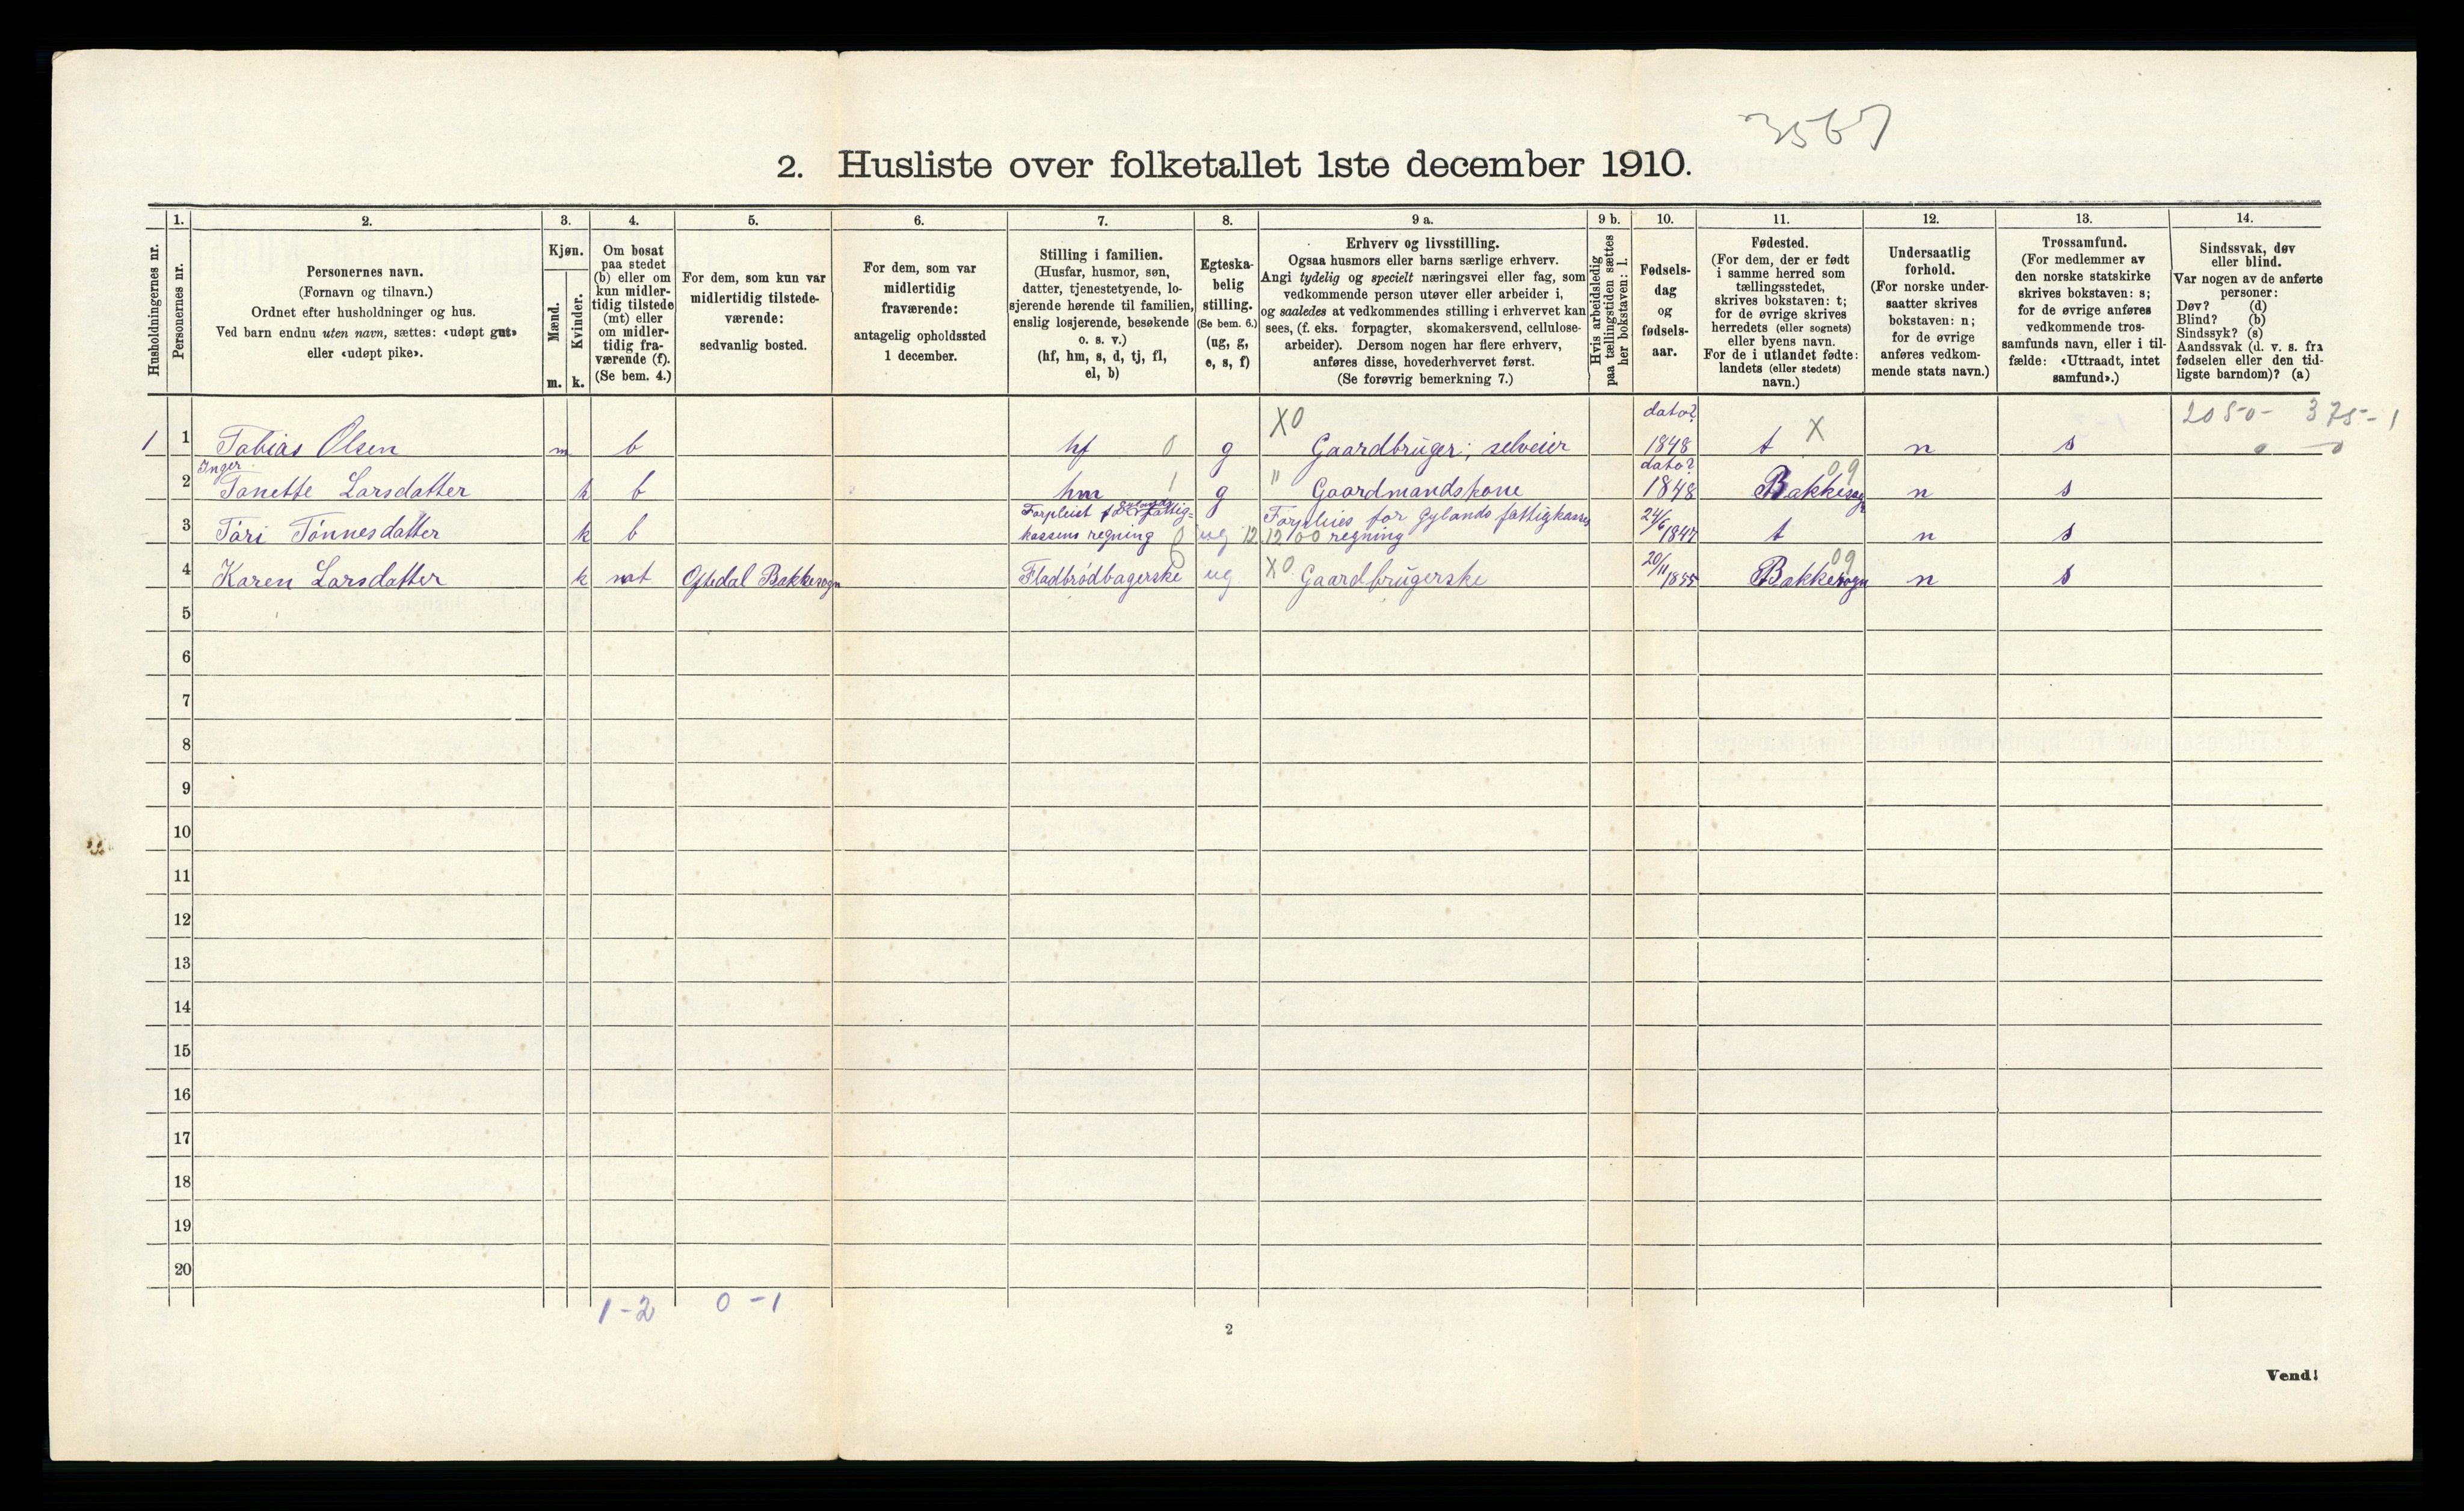 3567
2. Husliste over folketallet 1ste december 1910.
Husholdningernes nr.
1.
Personernes nr.
2.
Personernes navn.
(Fornavn og tilnavn.)
Ordnet efter husholdninger og hus.
Ved barn endnu uten navn, sættes: «udøpt gut»
eller «udøpt pike».
3.
Kjøn.
Mænd.
Kvinder.
m. k.
4.
Om bosat
paa stedet
(b) eller om
kun midler-
tidig tilstede
(mt) eller
om midler-
tidig fra-
værende (f).
(Se bem. 4.)
5.
For dem, som kun var
midlertidig tilstede-
værende:
sedvanlig bosted.
6.
For dem, som var
midlertidig
fraværende:
antagelig opholdssted
1 december.
7.
Stilling i familien.
(Husfar, husmor, søn,
datter, tjenestetyende, lo-
sjerende hørende til familien,
enslig losjerende, besøkende
o. s. v.)
(hf, hm, s, d, tj, fl,
el, b)
8.
Egteska-
belig
stilling.
(Se bem. 6.)
(ug, g,
e, s, f)
9 a.
Erhverv og livsstilling.
Ogsaa husmors eller barns særlige erhverv.
Angi tydelig og specielt næringsvei eller fag, som
vedkommende person utøver eller arbeider i,
og saaledes at vedkommendes stilling i erhvervet kan
sees, (f. eks. forpagter, skomakersvend, cellulose-
arbeider). Dersom nogen har flere erhverv,
anføres disse, hovederhvervet først.
(Se forøvrig bemerkning 7.)
9 b.
Hvis arbeidsledig
paa tællingstiden sættes
her bokstaven: l.
10.
Fødsels-
dag
og
fødsels-
aar.
11.
Fødested.
(For dem, der er født
i samme herred som
tællingsstedet,
skrives bokstaven: t;
for de øvrige skrives
herredets (eller sognets)
eller byens navn.
For de i utlandet fødte:
landets (eller stedets)
navn.)
12.
Undersaatlig
forhold.
(For norske under-
saatter skrives
bokstaven: n;
for de øvrige
anføres vedkom-
mende stats navn.)
13.
Trossamfund.
(For medlemmer av
den norske statskirke
skrives bokstaven: s;
for de øvrige anføres
vedkommende tros-
samfunds navn, eller i til-
fælde: «Uttraadt, intet
samfund».)
14.
Sindssvak, døv
eller blind.
Var nogen av de anførte
personer:
Døv? (d)
Blind? (b)
Sindssyk? (s)
Aandssvak (d. v. s. fra
fødselen eller den tid-
ligste barndom)? (a)
X0 dato? 205-0- 375-1
1 1 Tobias Olsen m b hf 0 g Gaardbruger; selveier 1848 t X n s
Inger dato? 09
2 Tanette Larsdatter k b hm 1 g " Gaardmandskone 1848 Bakkesogn n s
Forpleiet for Gylands fattig= Forpleies for Gylands fattigkasses
3 Tári Tønnesdatter k b kassens regning 0 ug 12 12/00 regning 24/6 1847 t n s
4 Karen Larsdatter k mt Oftedal Bakkesogn Fladbrødbagerske 0 ug X0 Gaardbrugerske 20/11 1855 Bakkesogn 09 n s
5
6
7
8
9
10
11
12
13
14
15
16
17
18
19
20
1-2 0-1
2
Vend!